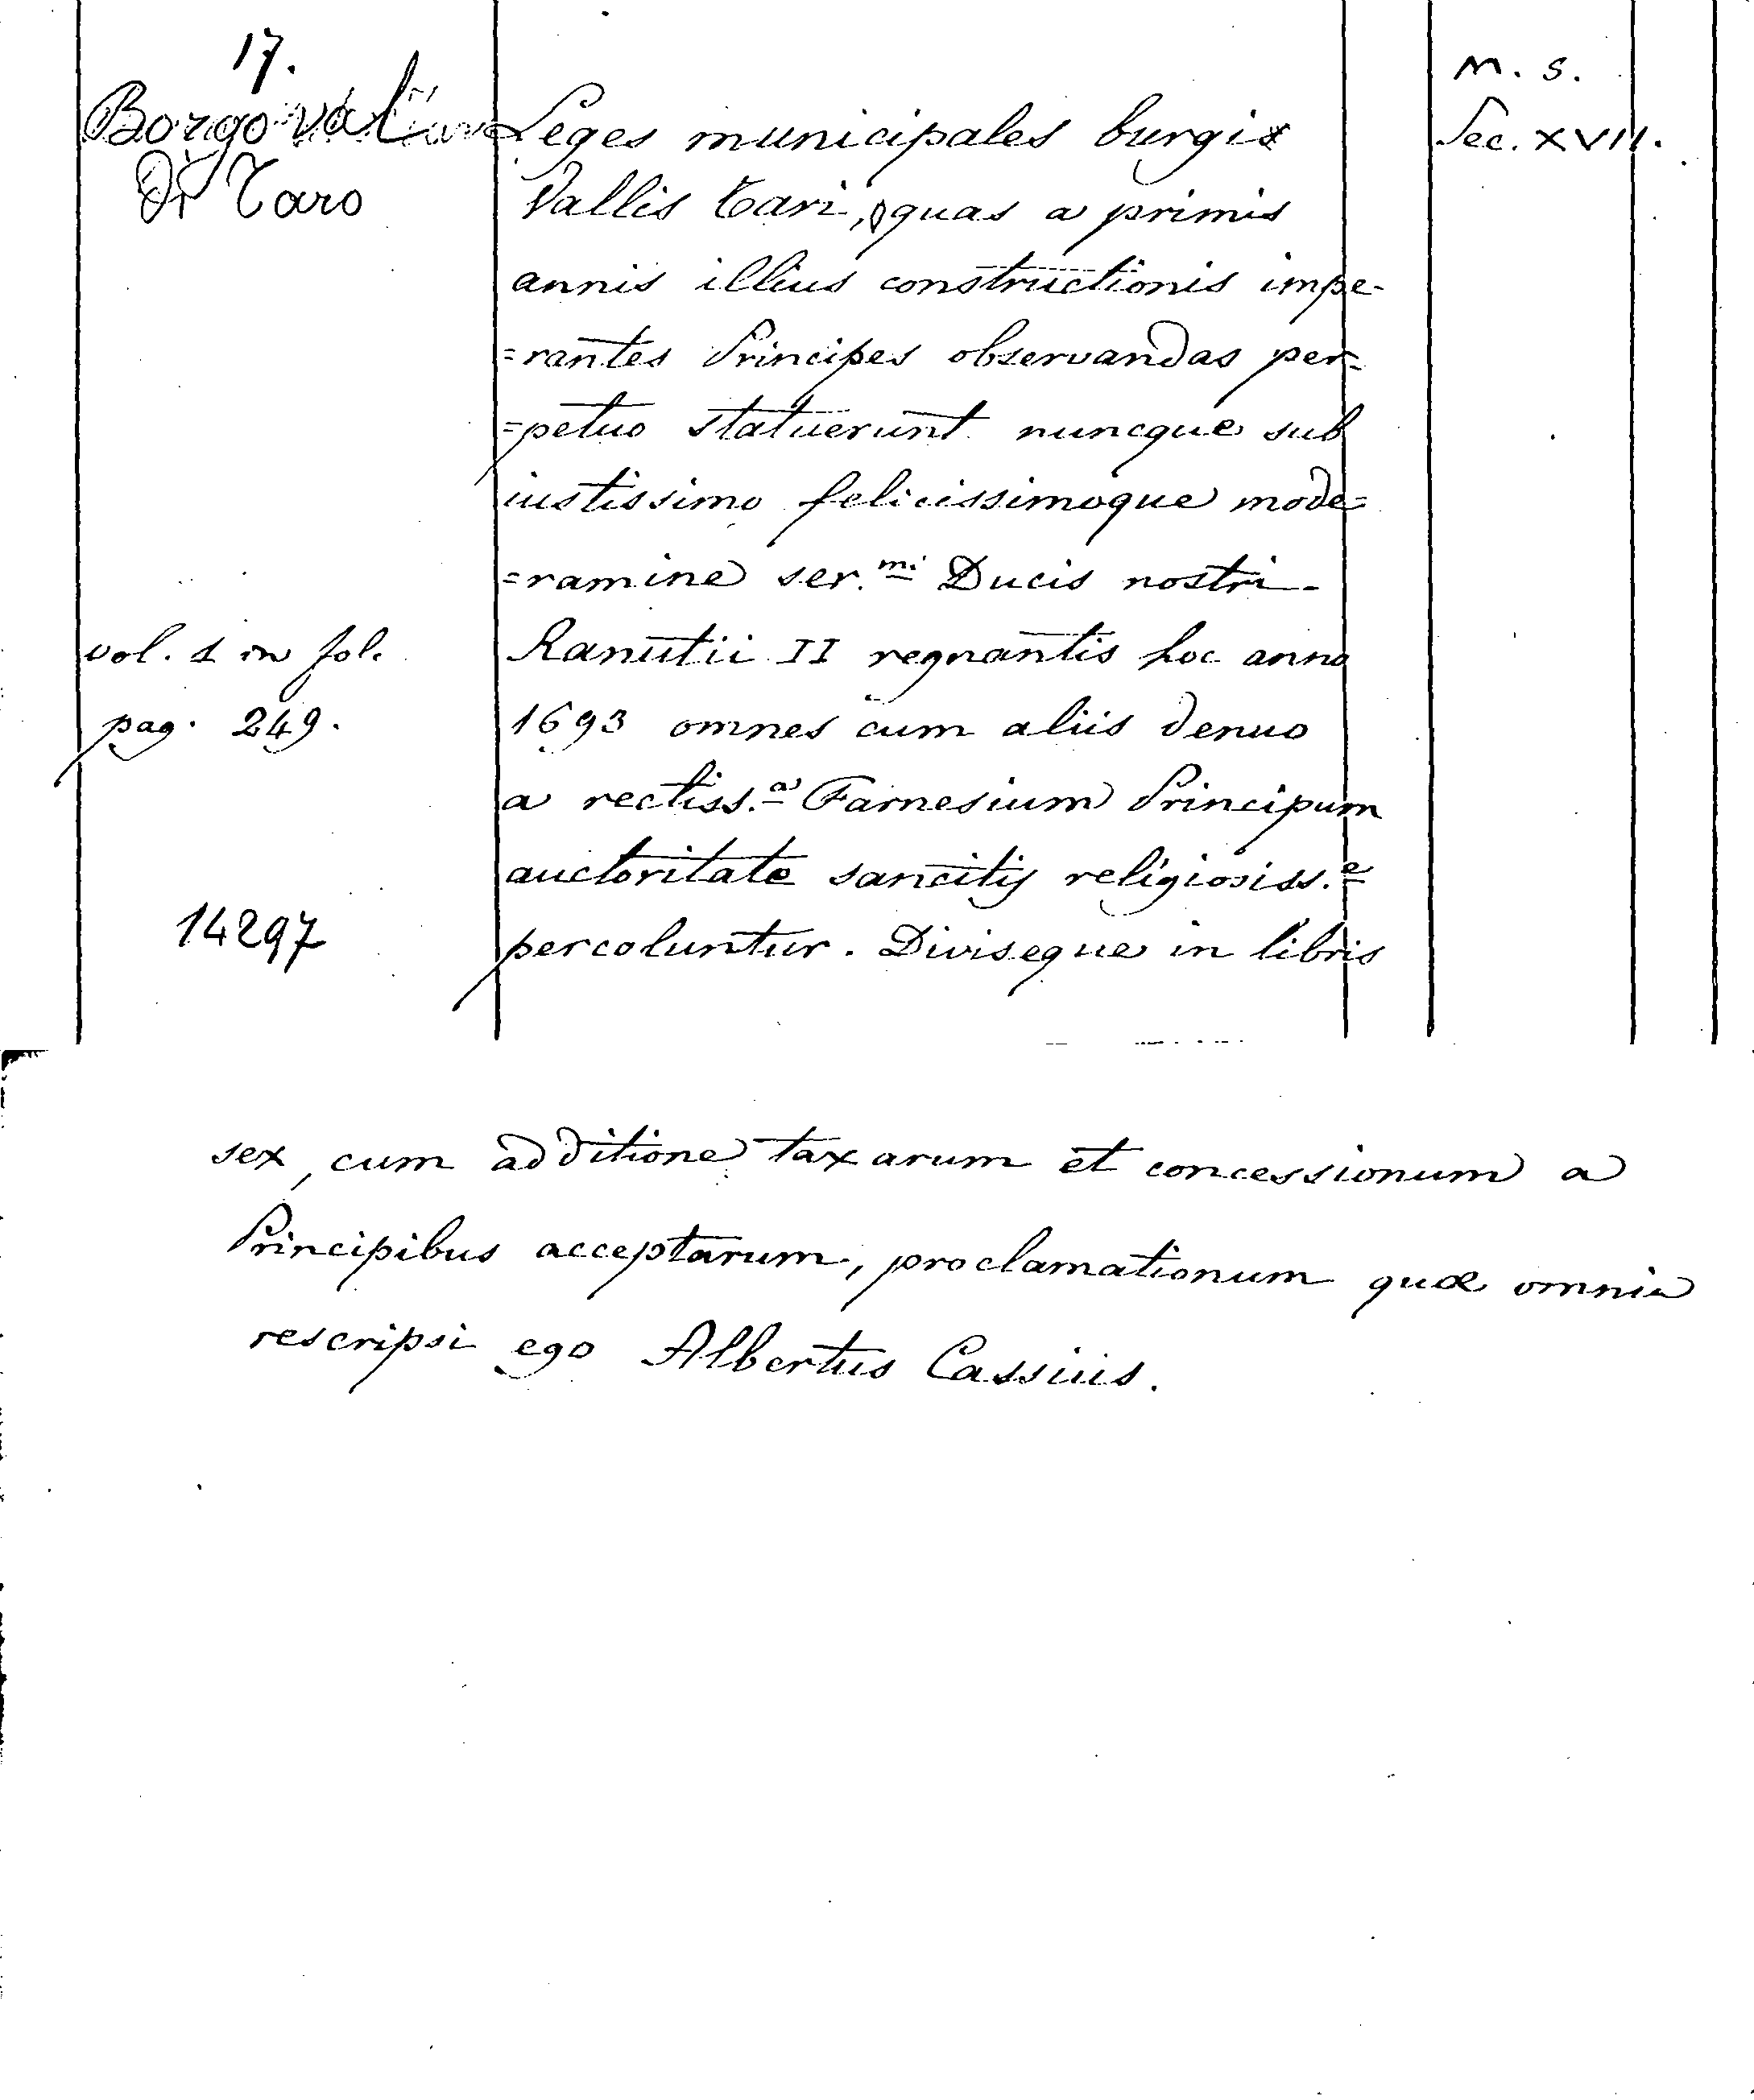 17.
Borgo val
di Taro
vol. 1 in fol.
pag. 249.
14297
Leges municipales burgi
Vallis Tari, quas a primis
annis illius constructionis impe-
=rantes Principes observandas per-
=petuo statuerunt nuncque sub
iustissimo felicissimoque mode=
=ramine ser.mi Ducis nostri
Ranutii II regnantis hoc anno
1693 omnes cum aliis denuo
a rectiss.a Farnesium Principum
auctoritate sancitij religiosiss.e
percoluntur. Diviseque in libris
M. S.
Sec. XVII.
sex, cum additione taxarum et concessionum a
Principibus acceptarum, proclamationum quæ omnia
rescripsi ego Albertus Cassius.